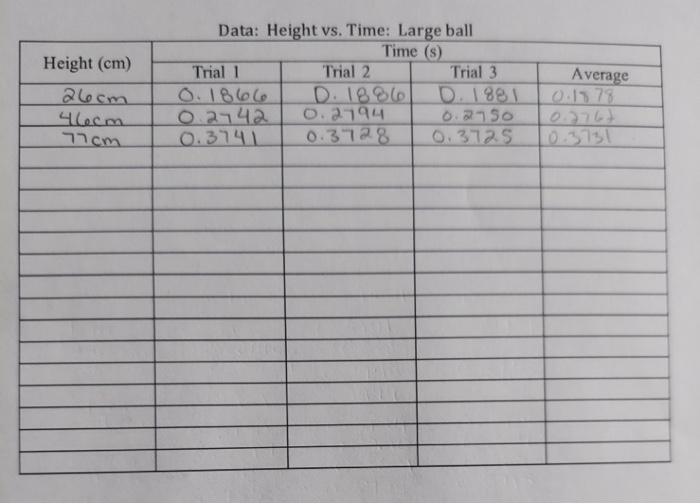 Data: Height vs. Time: Large ball
Height (cm) Time (s)
Trial 1 Trial 2 Trial 3 Average
26cm 0.1866 0.1886 0.1881 0.1878
46cm 0.2742 0.2794 0.2750 0.2762
77cm 0.3741 0.3728 0.3725 0.3731